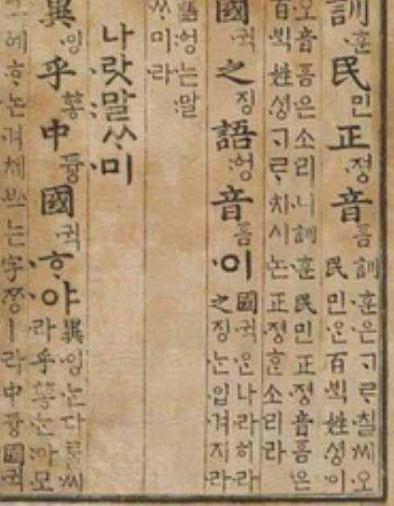 訓훈民민正졍音ᅙᅳᆷ
訓훈은ᄀᆞᄅᆞ칠씨오
民민ᄋᆞᆫ百ᄇᆡᆨ姓셩이
오音ᅙᅳᆷ은소리니訓훈民민正졍音ᅙᅳᆷ은
百ᄇᆡᆨ姓셩ᄀᆞᄅᆞ치시논正졍ᄒᆞᆫ소리라
國귁之징語ᅌᅥᆼ音ᅙᅳᆷ이
國귁ᄋᆞᆫ나라히라
之징ᄂᆞᆫ입겨지라
語ᅌᅥᆼ는말
ᄊᆞ미라
나랏말ᄊᆞ미
異잉乎ᅘᅩᆼ中듕國귁ᄒᆞ야
異잉ᄂᆞᆫ다ᄅᆞᆯ씨
라乎ᅘᅩᆼᄂᆞᆫ아모
ᅌᅦᄒᆞ논겨체ᄡᅳ는字ᄍᆞᆼㅣ라中듕國귁